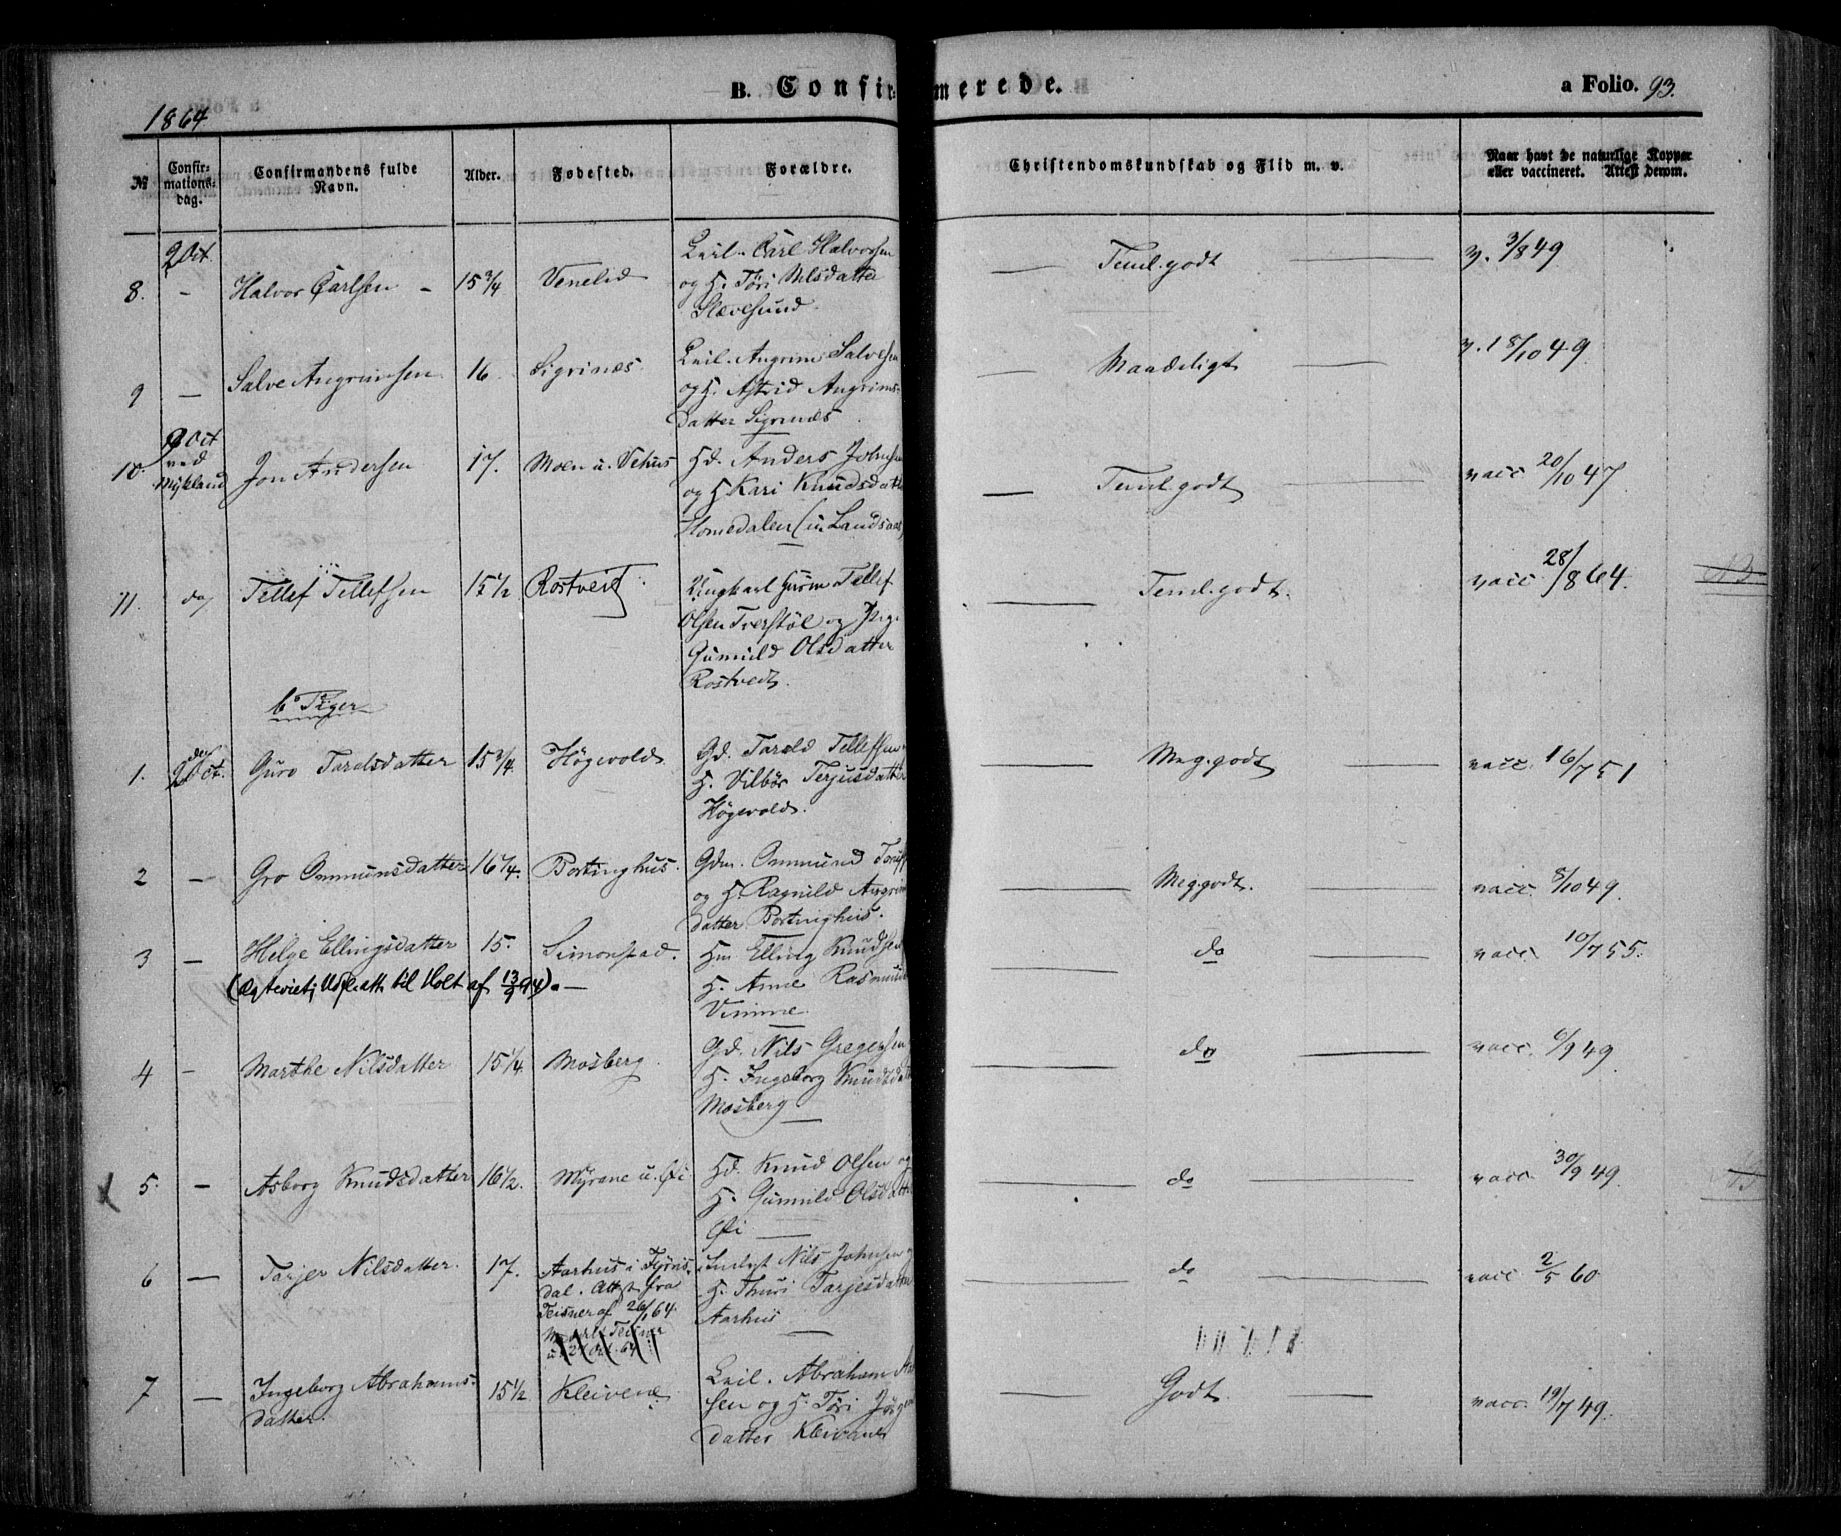 B. Confirmerede.
a Folio. 93.
1864
№
Confir-
mations-
dag.
Confirmandens fulde
Navn.
Alder.
Fødested.
Forældre.
Christendomskundskab og Flid m. v.
Naar havt de naturlige Kopper
eller vaccineret. Attest derom.
8.
2 Oct.
-
Halvor Carlsen -
15 3/4
Venelid
Carl Halvorsen
og H. Töri Nilsdatter
Slævesund.
Teml. godt
v. 3/8 49
9
-
Salve Angrimsen
16
Sigrinæs.
Angrim Salvesen
og H. Astrid Angrims-
datter Sigrinæs
Maadeligt
v. 18/10 49
10.
9 Oct
ved
Mykland
Jon Andersen
17.
Moen u. Vehus
Hd. Anders Johnsen
og H Kari Knudsdatt
Homedalen (u. Landsaas)
Teml. godt
vacc 20/10 47
11.
do,
Tellef Tellefsen
15 1/2
Rostveit
Ungkarl Tellef
Olsen Tverstöl og Pig.
Gunnild Olsdatter
Rostvedt.
Teml. godt.
vacc 28/8 64.
b. Piger
1.
den
2 Oct.
Guro Taralsdatter
15 3/4
Högevold
Gd. Tarald Tellefsen
H. Vilbör Terjusdatter
Högevold.
Meg. godt
vacc. 16/7 51
2
-
Gro Ommunsdatter
16 1/4.
Bortinghus.
Gdm. Ommund
og H. Ragnild Angrim
datter Bortinghus.
Meg. godt.
vacc. 8/10 49.
3
-
Helge Ellingsdatter
15.
Simonstad.
Hm Elling Knudsen
H. Anne Rasmusd
Vimme
do
vacc. 10/7 55.
til Holt af 13/9 94).
4
-
Marthe Nilsdatter
15 1/4
Mosberg.
Gd. Nils Gregersen
H. Ingeborg Knudsdatt
Mosberg
do
vacc. 6/9 49
5.
-
Asborg Knudsdatter
16 1/2.
Myrene u. Øi
Hd. Knud Olsen og
H. Gunnild Olsdatte
Øi
do
vacc. 30/9 49.
6
-
Tarjer Nilsdatter.
17.
Aarhus i Fyris-
dal. Attest fra
Teisner af 26/1 64.
Nils Johnsen
H. Thuri Tarjesdatter
Aarhus
do
vacc 2/5 60
7
-
Ingeborg Abrahams-
datter.
15 1/2
Kleivene
Abraham
sen og H. Töri
datter Kleivene
Godt.
vacc. 19/7 49.